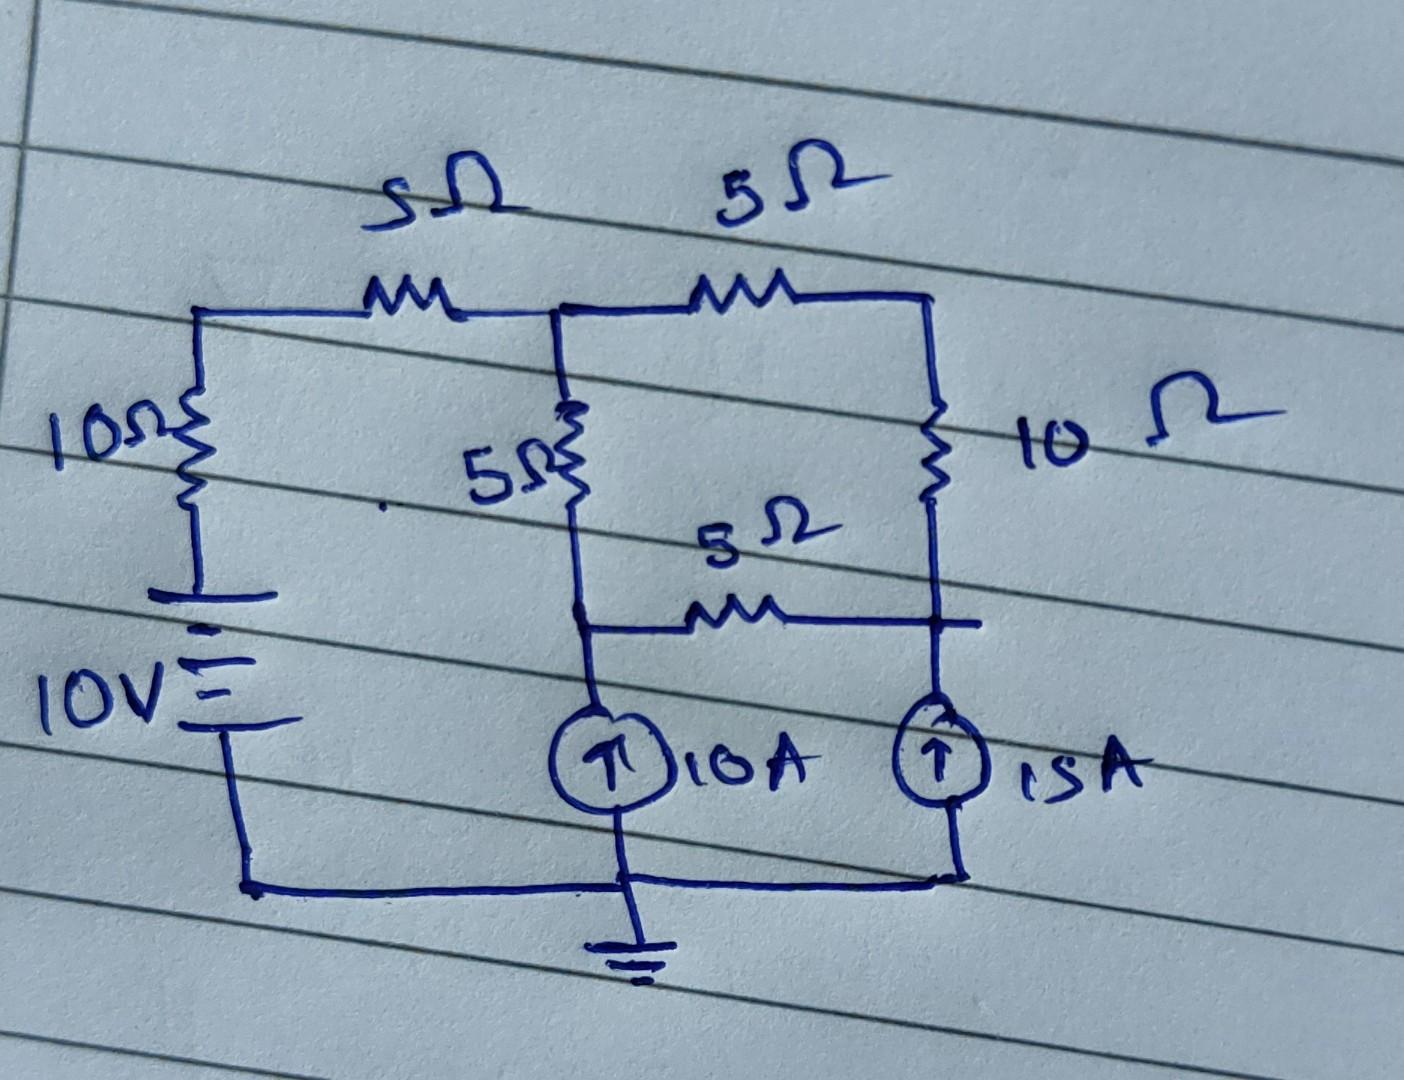 5Ω 5Ω
10Ω 5Ω 10 Ω
5Ω
10V 10A 15A